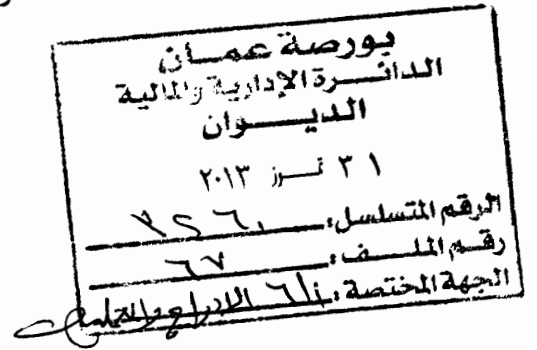 بورصة عمان
الدائرة الإدارية والمالية
الديوان
٣١ تموز ٢٠١٣
الرقم المتسلسل:
رقم الملف: ٦٧
الجهة المختصة: الإدراج والعمليات